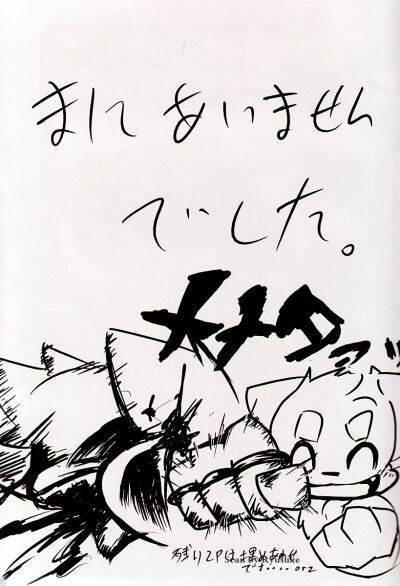 まにあいません
でした。
メメタァッ
残り2Pは埋めあわせ
です・・・・orz
Scan by Ryusuke